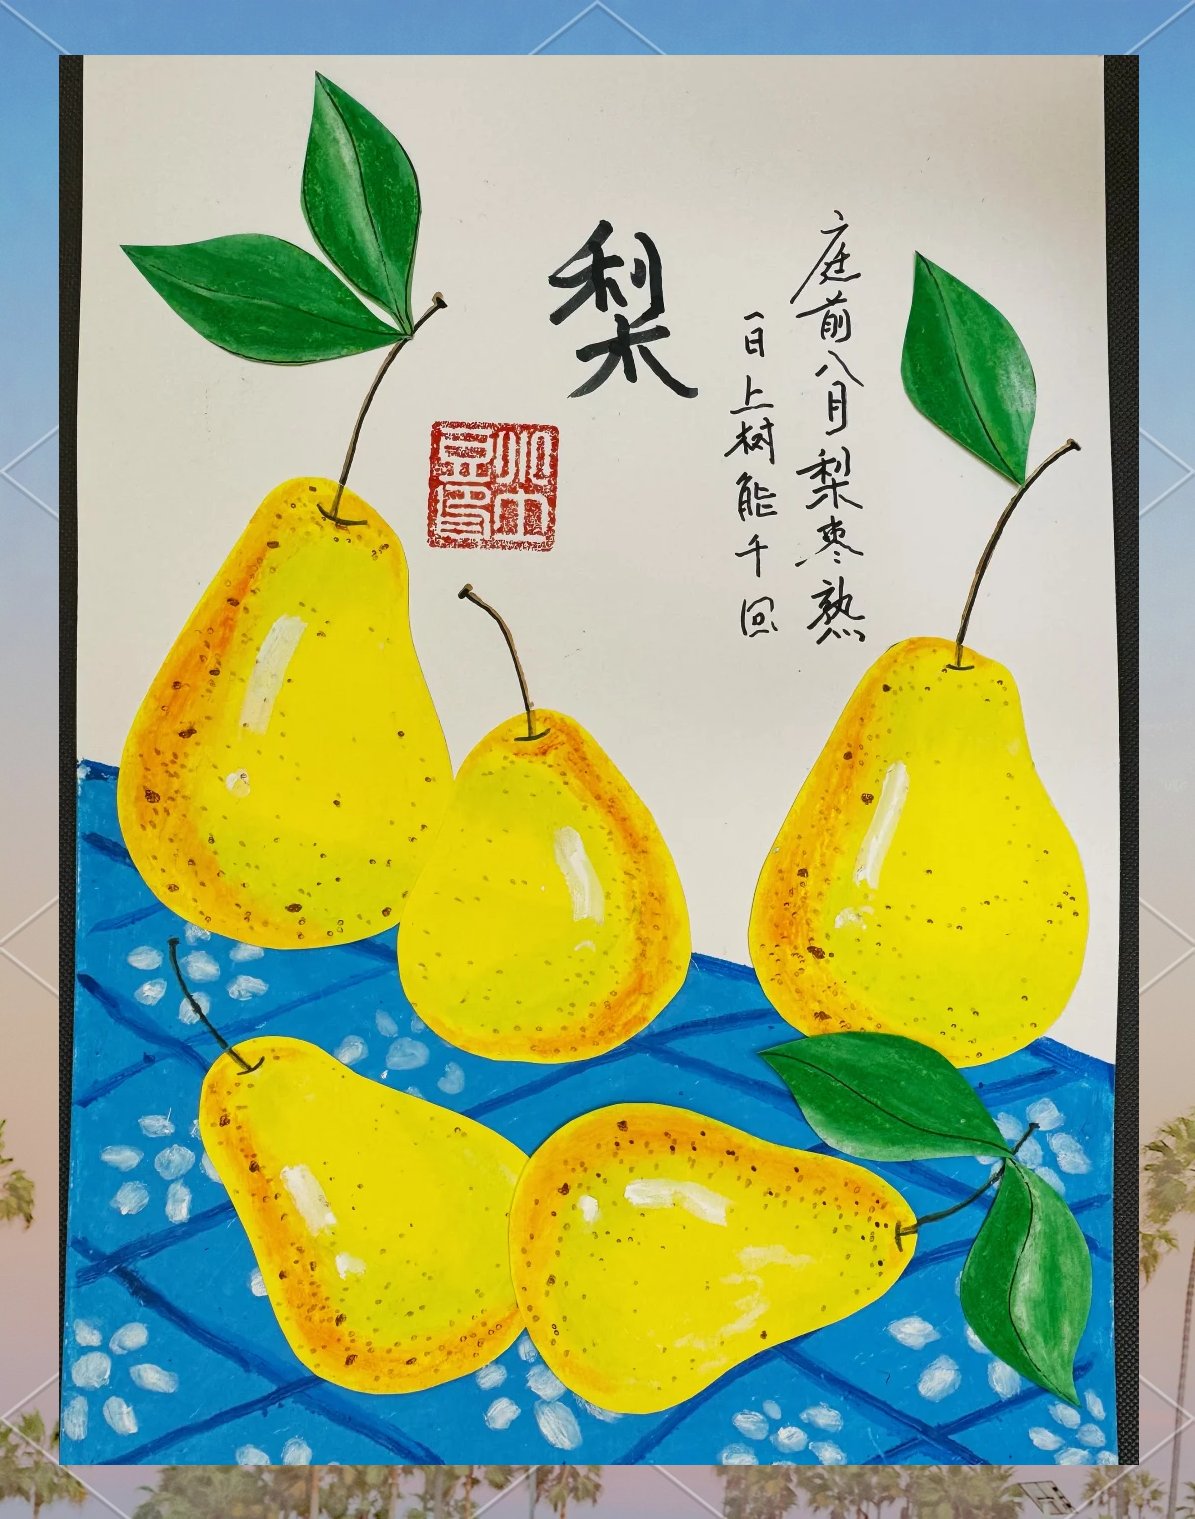 庭前八月梨枣熟
一日上树能千回
梨